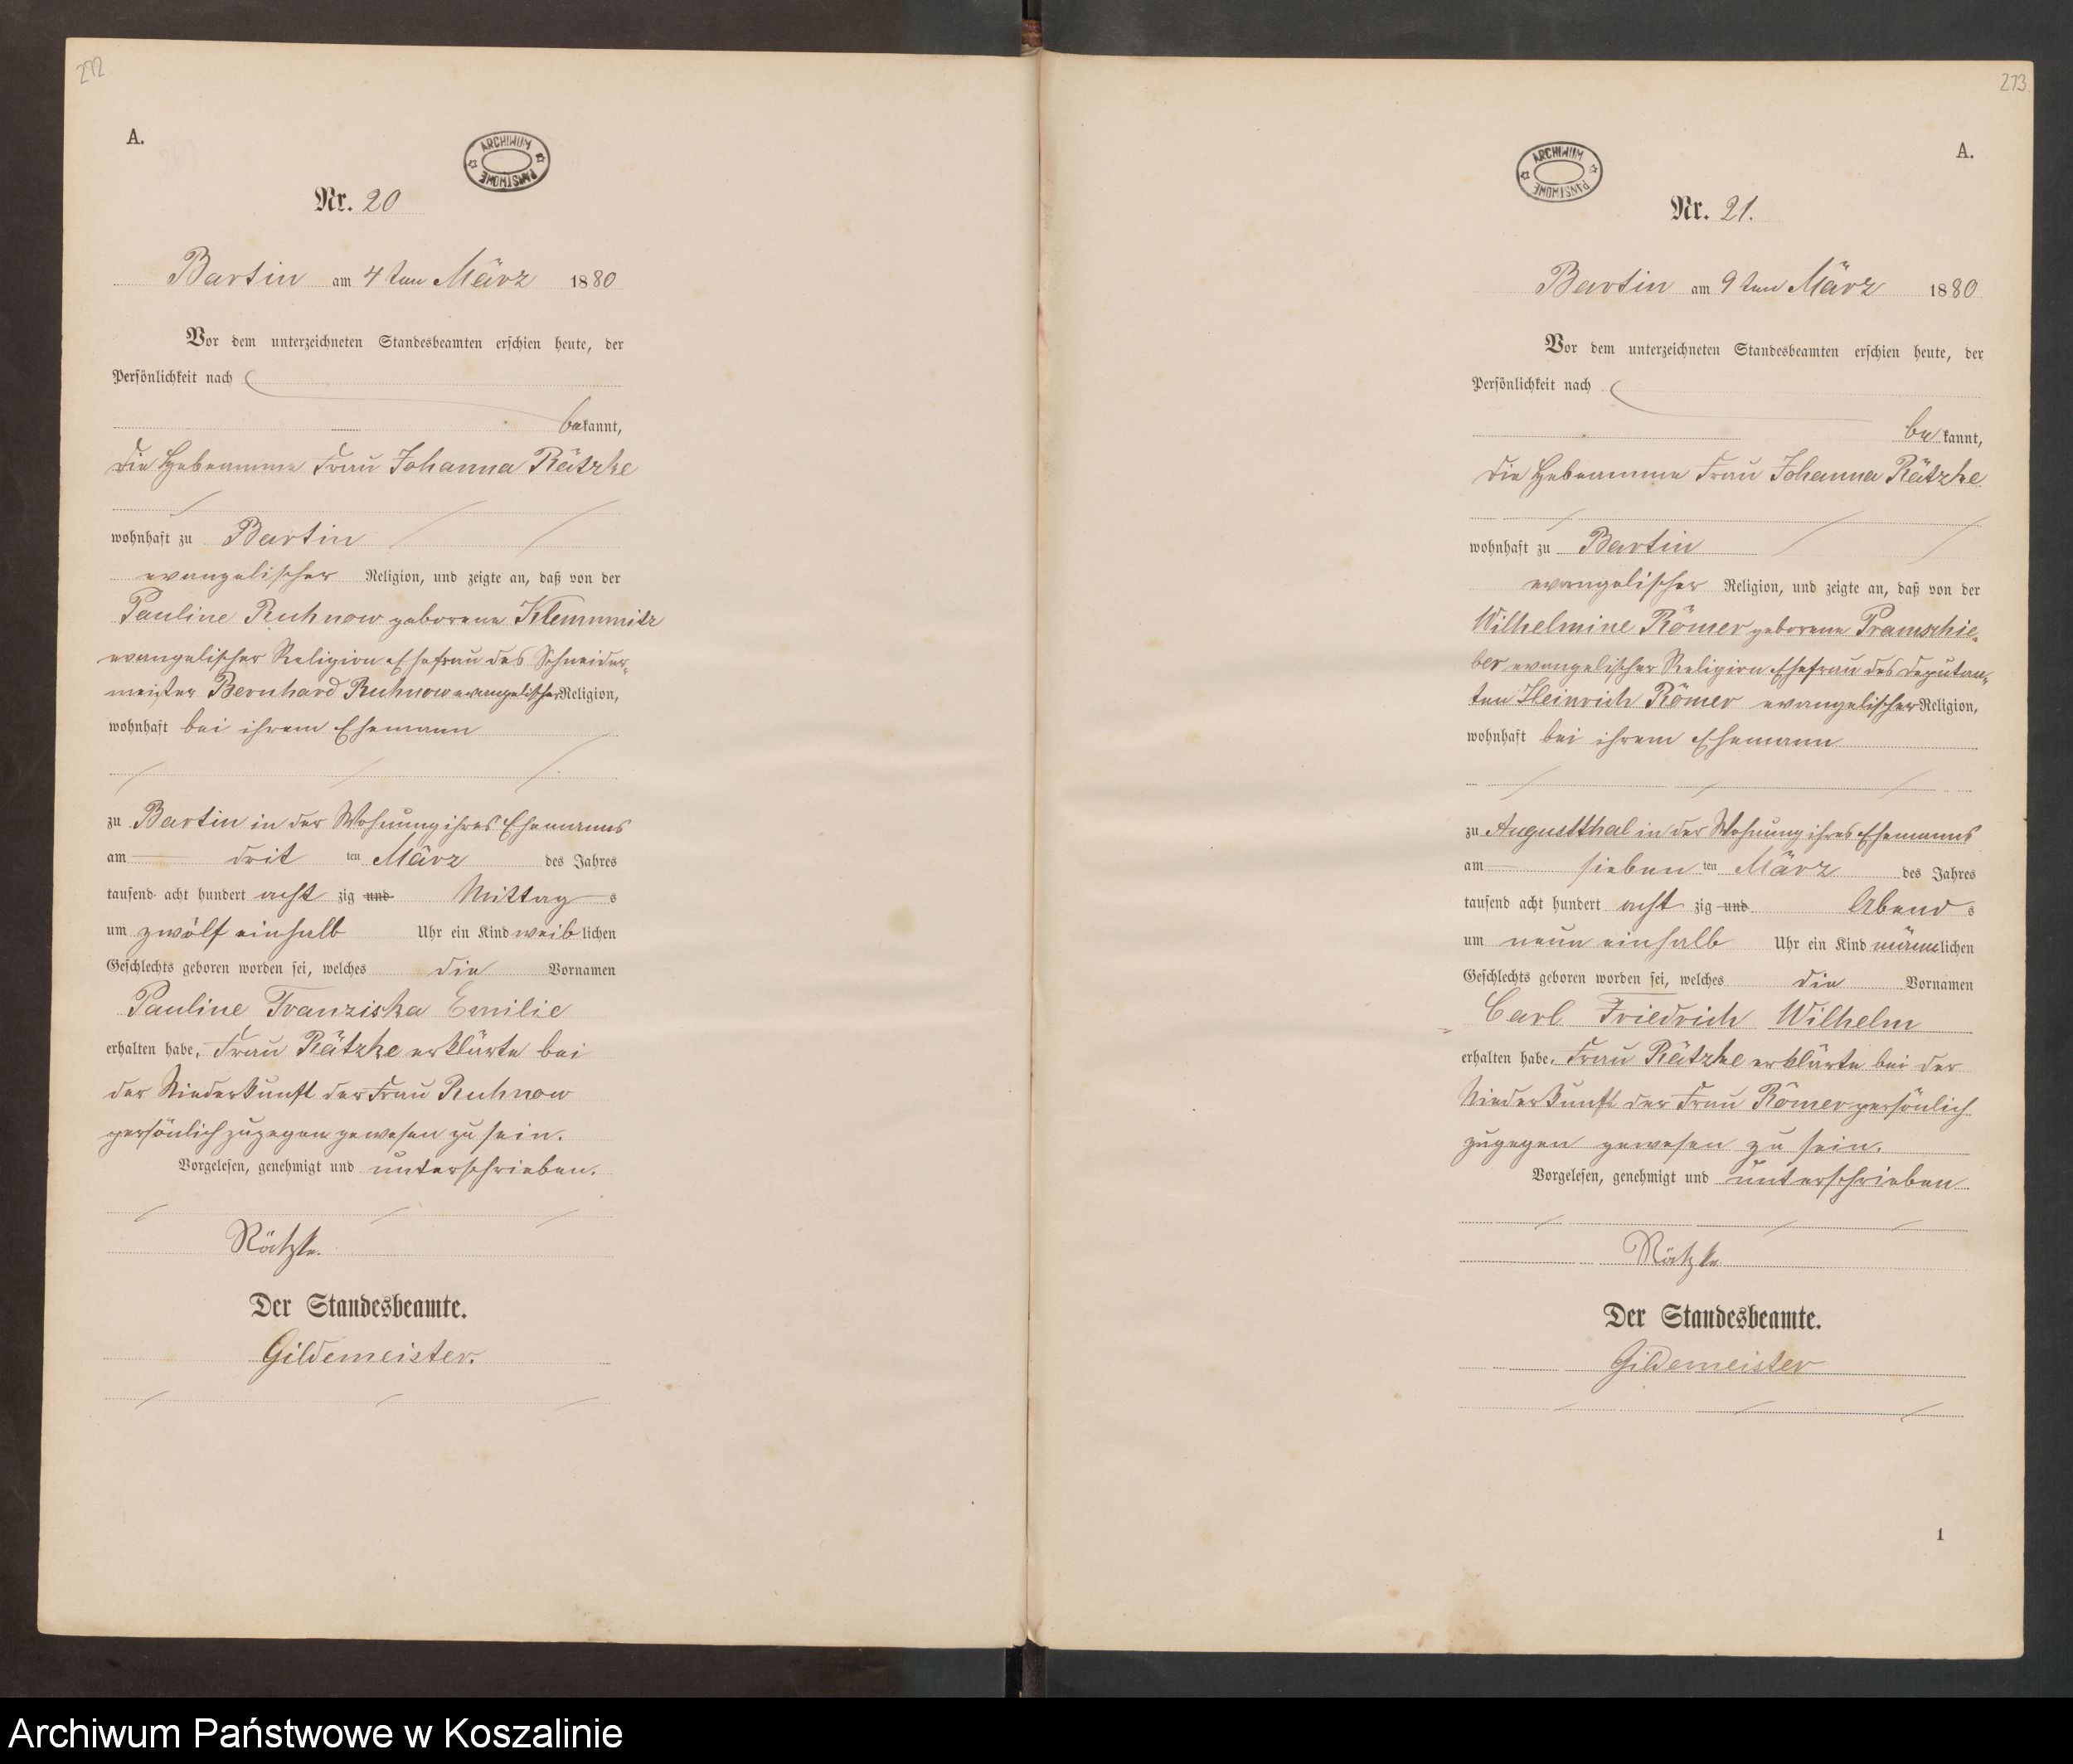 272
A.
ARCHIWUM PAŃSTWOWE
Nr. 20
Bartin am 4ten März 1880
Vor dem unterzeichneten Standesbeamten erschien heute, der
Persönlichkeit nach
bekannt,
die Hebeamme Frau Johanna Rätzke
wohnhaft zu Bartin
evangelischer Religion, und zeigte an, daß von der
Pauline Ruhnow geborene Klemmitz
evangelischer Religion Ehefrau des Schneider„
meister Bernhard Ruhnow evangelischer Religion,
wohnhaft bei ihrem Ehemann
zu Bartin in der Wohnung ihres Ehemanns
am drit ten März des Jahres
tausend acht hundert acht zig und Mittag s
um zwölf einhalb Uhr ein Kind weib lichen
Geschlechts geboren worden sei, welches die Vornamen
Pauline Franziska Emilie
erhalten habe. Frau Rätzke erklärte bei
der Niederkunft der Frau Ruhnow
persönlich zugegen gewesen zu sein.
Vorgelesen, genehmigt und unterschrieben.
Rätzke.
Der Standesbeamte.
Gildemeister.
273
A.
ARCHIWUM PAŃSTWOWE
Nr. 21.
Bartin am 9ten März 1880
Vor dem unterzeichneten Standesbeamten erschien heute, der
Persönlichkeit nach
be kannt,
die Hebeamme Frau Johanna Rätzke
wohnhaft zu Bartin
evangelischer Religion, und zeigte an, daß von der
Wilhelmine Römer geborene Pramschie„
ber evangelischer Religion Ehefrau des Deputan„
ten Heinrich Römer evangelischer Religion,
wohnhaft bei ihrem Ehemann
zu Augustthal in der Wohnung ihres Ehemanns
am sieben ten März des Jahres
tausend acht hundert acht zig und Abend s
um neun einhalb Uhr ein Kind männ lichen
Geschlechts geboren worden sei, welches die Vornamen
Carl Friedrich Wilhelm
erhalten habe. Frau Rätzke erklärte bei der
Niederkunft der Frau Römer persönlich
zugegen gewesen zu sein.
Vorgelesen, genehmigt und unterschrieben
Rätzke
Der Standesbeamte.
Gildemeister
1
Archiwum Państwowe w Koszalinie